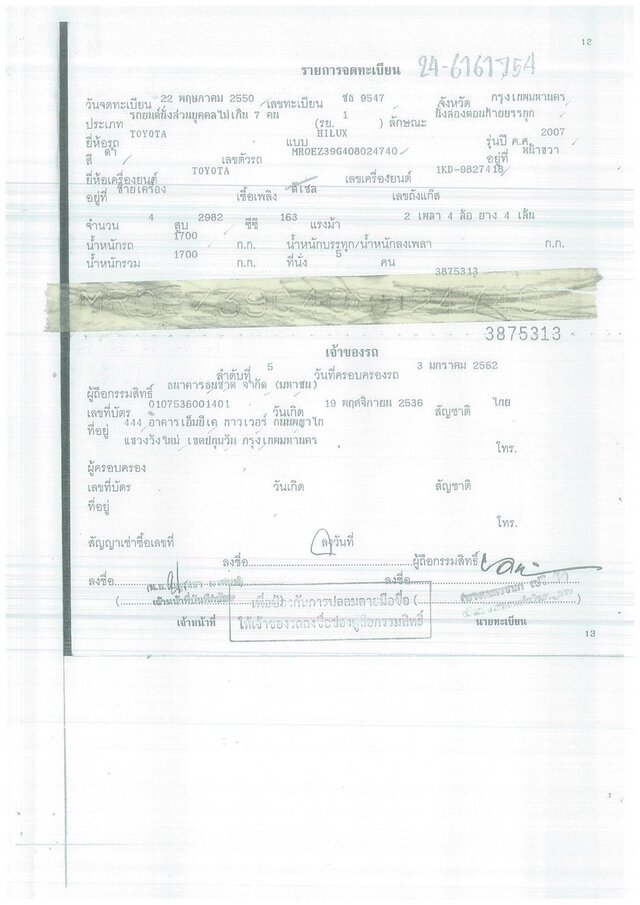 12
รายการจดทะเบียน 24-6161754
วันจดทะเบียน 22 พฤษภาคม 2550 เลขทะเบียน ชธ 9547 จังหวัด กรุงเทพมหานคร
ประเภท รถยนต์นั่งส่วนบุคคลไม่เกิน 7 คน (รย. 1 ) ลักษณะ นั่งสองตอนท้ายบรรทุก
ยี่ห้อรถ TOYOTA แบบ HILUX รุ่นปี ค.ศ. 2007
สี ดำ เลขตัวรถ MROEZ39G408024740 อยู่ที่ หน้าขวา
ยี่ห้อเครื่องยนต์ TOYOTA เลขเครื่องยนต์ 1KD-9827418
อยู่ที่ ซ้ายเครื่อง เชื้อเพลิง ดีเซล เลขถังแก๊ส
จำนวน 4 สูบ 2982 ซีซี 163 แรงม้า 2 เพลา 4 ล้อ ยาง 4 เส้น
น้ำหนักรถ 1700 ก.ก. น้ำหนักบรรทุก/น้ำหนักลงเพลา ก.ก.
น้ำหนักรวม 1700 ก.ก. ที่นั่ง 5 คน
3875313
3875313
เจ้าของรถ
ลำดับที่ 5 วันที่ครอบครองรถ 3 มกราคม 2562
ผู้ถือกรรมสิทธิ์ ธนาคารธนชาต จำกัด (มหาชน)
เลขที่บัตร 0107536001401 วันเกิด 19 พฤศจิกายน 2536 สัญชาติ ไทย
ที่อยู่ 444 อาคารเอ็มบีเค ทาวเวอร์ ถนนพญาไท
แขวงวังใหม่ เขตปทุมวัน กรุงเทพมหานคร
โทร.
ผู้ครอบครอง
เลขที่บัตร วันเกิด สัญชาติ
ที่อยู่
โทร.
สัญญาเช่าซื้อเลขที่ ลงวันที่
ลงชื่อ ผู้ถือกรรมสิทธิ์
ลงชื่อ ลงชื่อ
เพื่อป้องกันการปลอมลายมือชื่อ
เจ้าหน้าที่ ให้เจ้าของรถลงชื่อช่องผู้ถือกรรมสิทธิ์ นายทะเบียน
13